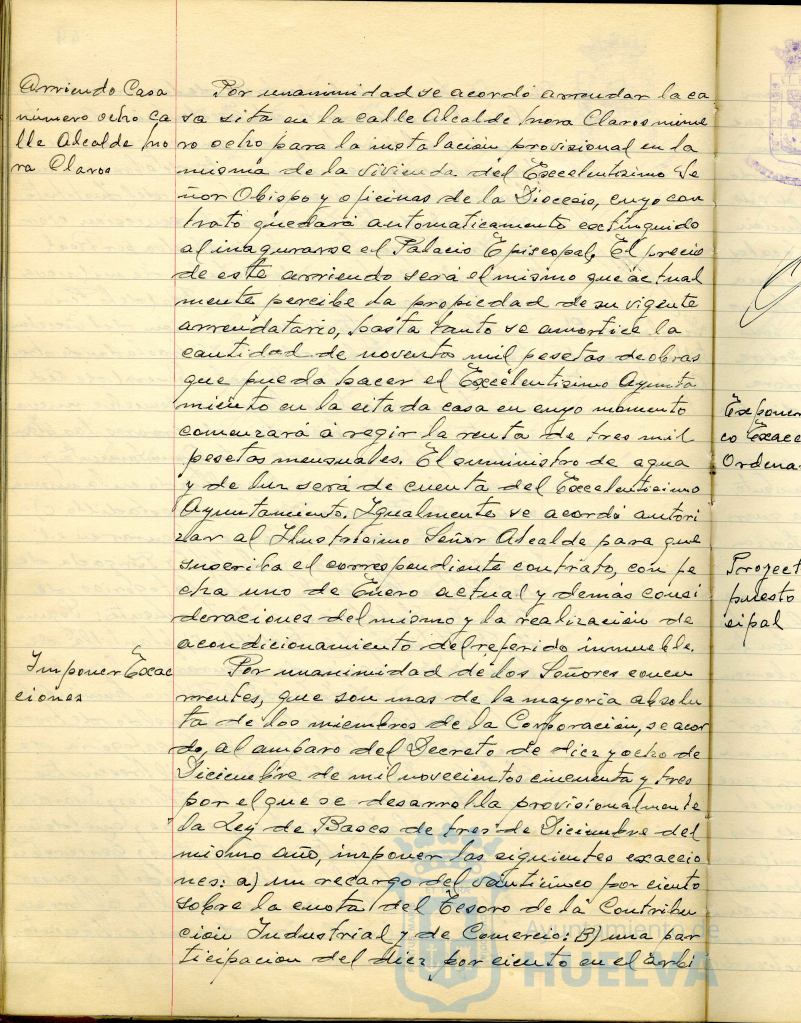 Arriendo Casa
número ocho ca
lle Alcalde Mo
ra Claros
Por unanimidad se acordó arrendar la ca
sa sita en la calle Alcalde Mora Claros núme
ro ocho para la instalación provisional en la
misma de la vivienda del Excelentísimo Se
ñor Obispo y oficinas de la Diocecis, cuyo con
trato quedará automaticamente extinguido
al inagurarse el Palacio Episcopal. El precio
de este arriendo será el mismo que actual
mente percibe la propiedad de su vigente
arrendatario, hasta tanto se amortice la
cantidad de noventa mil pesetas de obras
que pueda hacer el Excelentisimo Ayunta
miento en la citada casa en cuyo momento
comenzará á regir la renta de tres mil
pesetas mensuales. El suministro de agua
y de luz será de cuenta del Excelentisimo
Ayuntamiento. Igualmente se acordó autori
zar al Ilustrisimo Señor Alcalde para que
suscriba el correspondiente contrato, con fe
cha uno de Enero actual y demás consi
deraciones del mismo y la realización de
acondicionamiento del referido inmueble.
Imponer Exac
ciones
Por unanimidad de los Señores concu
rrentes, que son mas de la mayoria absolu
ta de los miembros de la Corporación, se acor
do, al amparo del Decreto de diez y ocho de
Diciembre de mil novecientos cincuenta y tres
por el que se desarrolla provisionalmente
la Ley de Bases de tres de Diciembre del
mismo año, imponer las siguientes exaccio
nes: a) un recargo del veinticinco por ciento
sobre la cuota del Tesoro de la Contribu
ción Industrial y de Comercio: B) una par
ticipacion del diez por ciento en el Arbi
Exponer
co Exacc
Ordena
Proyect
puesto
cipal
Ayuntamiento de
HUELVA